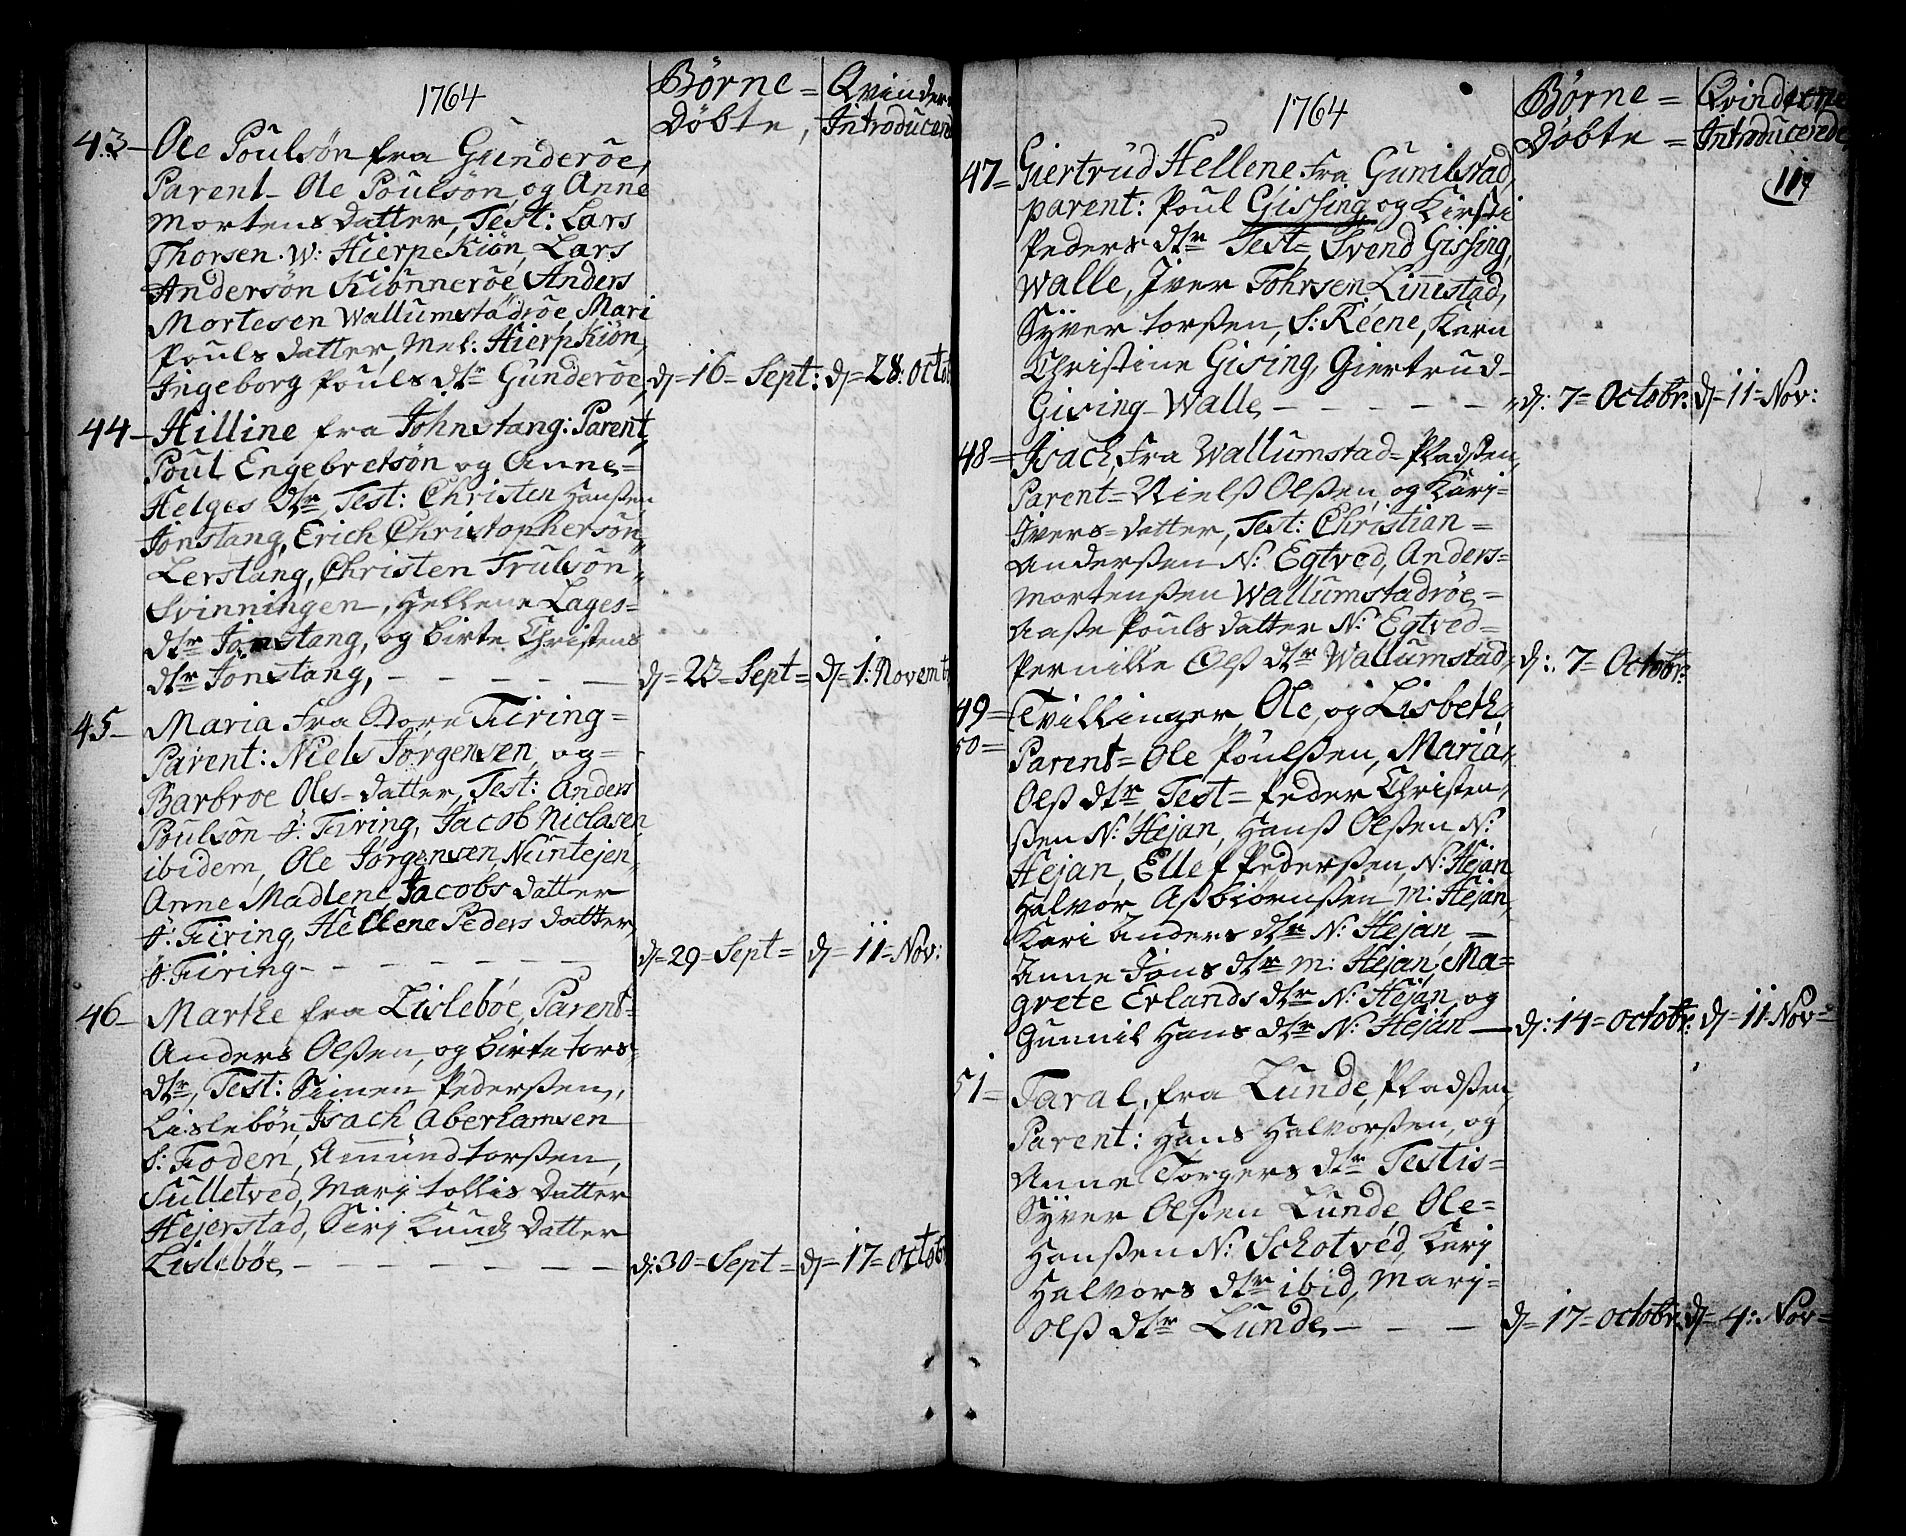 1764
Børne = Qvinder
Døbte, Introducerd
43– Ole Poulsön fra Gunderöe,
Parent– Ole Poulsön og Anne
Mortens Datter, Test: Lars
Thorsen. W: HierpeKiön, Lars
Andersön Kiönneröe Anders
Mortesen Wallumstadröe, Mari
Pouls Datter, Mel: HierpKiön,
Ingeborg Pouls dtr Gunderöe, d– 16– Sept: d– 28: Octob
44– Hilline fra Johnstang: Parent,
Poul Engebretsön og Anne=
Helges dtr, Test: Christen Hanßen
Jonstang, Erich Christophersön,
Lerstang, Christen Trulsön
Svinningen, Hellene Lages=
dtr Jonstang, og Birte Christens
dtr Jonstang, – – – – – d= 23= Sept= d= 1: Novemb
45– Maria fra Bore Tiring=
Parent: Niels Jörgensen, og=
Barbroe Ols= Datter, Test: Anders
Poulsön ö: Tiring, Jacob Niclasen
ibidem, Ole Jörgensen Nuntejen,
Anne Madlene Jacobs Datter
ö: Tiring, Hellene Peders Datter,
ö: Tiring – – – – – – d= 29= Sept= d= 11= Nov:
46– Marthe fra Lisleböe, Parent=
Anders Olßen, og Birte tors=
dtr, Test: Simen Pederßen,
Lislebön, Isach Aberhamsen
S: Foden, Amund torßen,
Sulletved, Marj tollis Datter
Hejerstad, Sirj Knuds Datter
Lisleböe, – – – – – – – d: 30= Sept= d= 17= Octob
1764
Børne = Qvinderne
Døbte = Introducerede
119
47= Giertrud Hellene fra Gunilstad,
parent: Poul Gissing, og Kirsti
Peders dtr Test=, Svend Gissing,
Walle, Iver Tohrsen Linnestad,
Syver torßen, S: Reene, Karn
Christine Gising, Giertrud=
Gising= Walle, – – – – – d: 7= Octobr: d= 11= Nov:
48= Isach, fra Wallumstad= Pladßen,
Parent= Nielß Olßen, og Karj=
Ivers= datter, Test: Christian=
Anderßen N: Egtved, Anders=
Mortenßen Wallumstadröe,=
Aaße Pouls datter N: Egtved=
Pernille Olß dtr Wallumstad, d: 7= Octobr:
49= Tvillinger, Ole, og Lisbeth,
50= Parent= Ole Poulßen, Maria,
Olß dtr Test= Peder Christen,
ßen N: Hejan, Hanß Olßen N:
Hejan, Ellef Pederßen, N: Hejan
Halvor Aßbiörnßen, M: Hejan,
Kari Anders dtr N: Hejan, –
Anne Jons dtr M: Hejan, Ma=
grete Erlands dtr N: Hejan, og
Gunnil Hans dtr N: Hejan — d: 14= octobr: d= 11= Nov=
51= Taral, fra Lunde, Pladßen,
Parent: Hans Halvorßen, og
Anne Torgers dtr Testis=
Syver Olßen Lunde, Ole=
Hanßen N: Schotved, Karj
Halvors dtr ibid, Marj=
Olß dtr Lunde, – – – d= 17= octobr: d= 4: Nov=